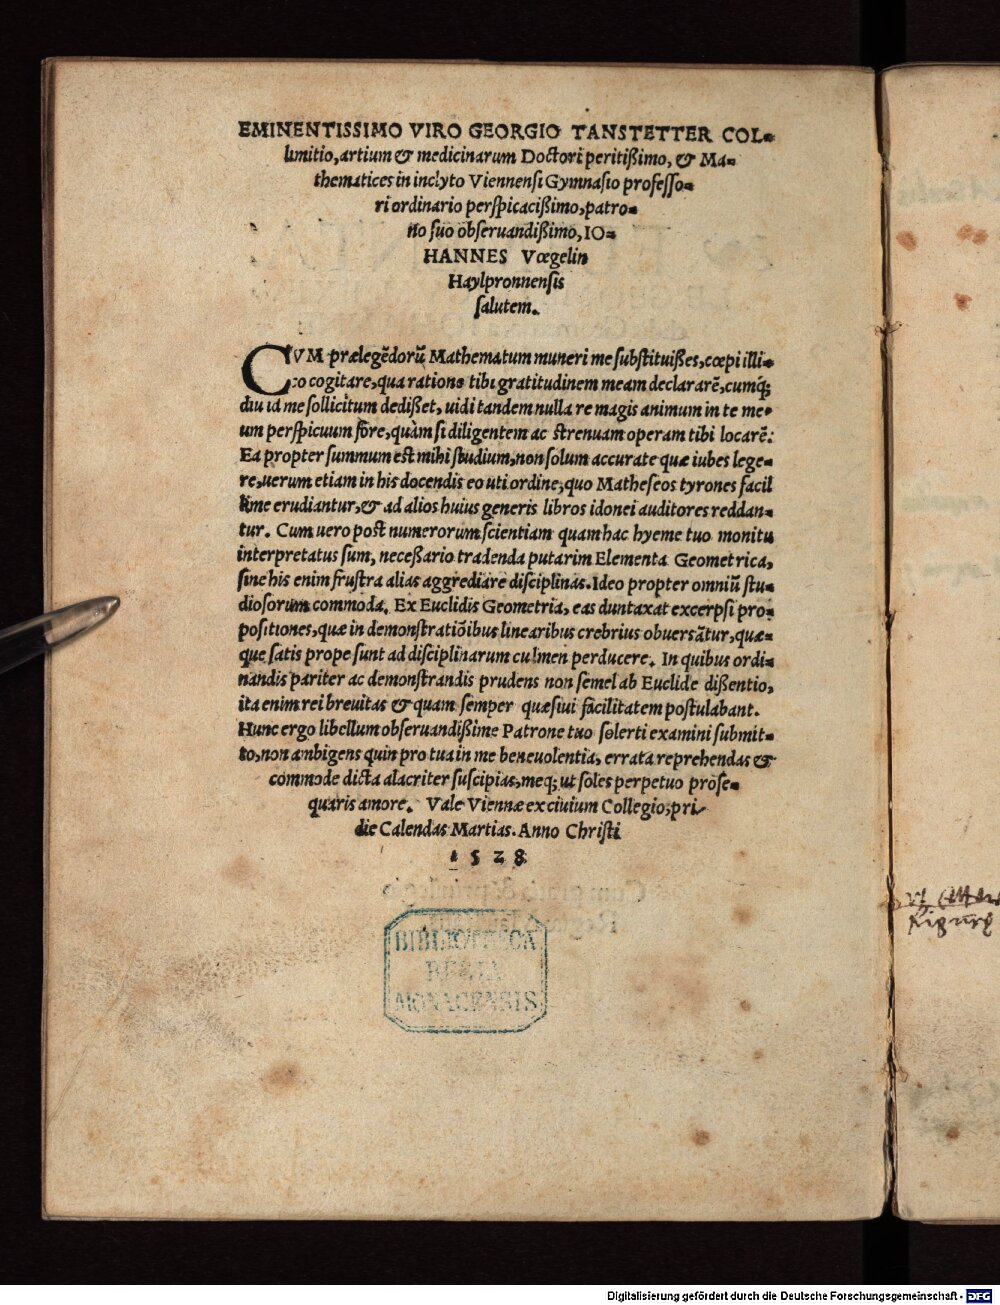 EMINENTISSIMO VIRO GEORGIO TANSTETTER COL-
limitio, artium & medicinarum Doctori peritißimo, & Ma-
thematices in inclyto Viennensi Gymnasio professo-
ri ordinario perspicacißimo, patro-
no suo obseruandißimo, IO-
HANNES Vœgelin
Haylpronnensis
salutem.
CVM prælegẽdorũ Mathematum muneri me substituißes, cœpi illi-
co cogitare, qua ratione tibi gratitudinem meam declararẽ, cumq;
diu id me sollicitum dedißet, uidi tandem nulla re magis animum in te me-
um perspicuum fore, quàm si diligentem ac strenuam operam tibi locarẽ:
Ea propter summum est mihi studium, non solum accurate quæ iubes lege-
re, uerum etiam in his docendis eo uti ordine, quo Matheseos tyrones facil
lime erudiantur, & ad alios huius generis libros idonei auditores reddan-
tur. Cum uero post numerorum scientiam quam hac hyeme tuo monitu
interpretatus sum, neceßario tradenda putarim Elementa Geometrica,
sine his enim frustra alias aggrediare disciplinas. Ideo propter omniũ stu-
diosorum commoda, Ex Euclidis Geometria, eas duntaxat excerpsi pro-
positiones, quæ in demonstratiõibus linearibus crebrius obuersãtur, quæ-
que satis prope sunt ad disciplinarum culmen perducere. In quibus ordi-
nandis pariter ac demonstrandis prudens non semel ab Euclide dißentio,
ita enim rei breuitas & quam semper quæsiui facilitatem postulabant.
Hunc ergo libellum obseruandißime Patrone tuo solerti examini submit-
to, non ambigens quin pro tua in me beneuolentia, errata reprehendas &
commode dicta alacriter suscipias, meq; ut soles perpetuo prose-
quaris amore. Vale Viennæ ex ciuium Collegio, pri-
die Calendas Martias. Anno Christi
1528
BIBLIOTHECA
REGIA
MONACENSIS
Digitalisierung gefördert durch die Deutsche Forschungsgemeinschaft - DFG